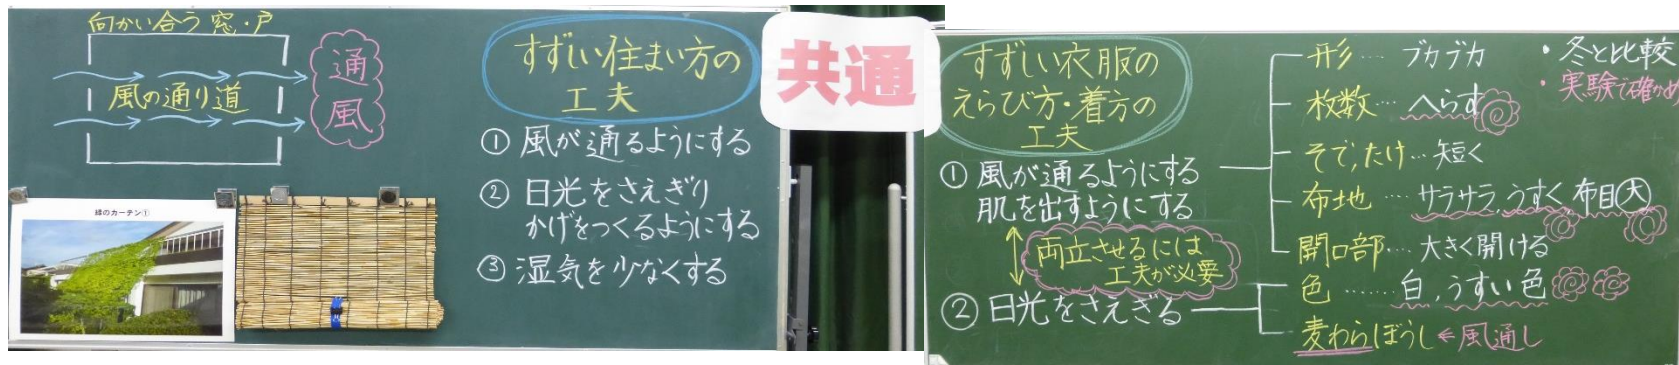 向かい合う窓・戸
風の通り道
通風
緑のカーテン①
すずしい住まい方の
工夫
① 風が通るようにする
② 日光をさえぎり
かげをつくるようにする
③ 湿気を少なくする
共通
すずしい衣服の
えらび方・着方の
工夫
① 風が通るようにする
肌を出すようにする
両立させるには
工夫が必要
② 日光をさえぎる
形…ブカブカ
枚数…へらす
そで,たけ…短く
布地…サラサラ,うすく,布目大
開口部…大きく開ける
色……白,うすい色
麦わらぼうし←風通し
・冬と比較
・実験で確かめ